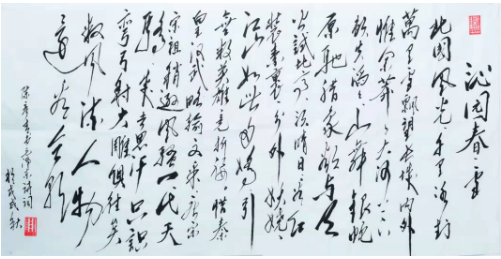 沁园春 雪
北国风光千里冰封
萬里雪飘望长城内外
惟余莽々大河上下
顿失滔々山舞银蛇
原驰蜡象欲与天
公试比高须晴日看红
装素裹分外妖娆
江山如此多娇引
無数英雄竞折腰惜秦
皇汉武略输文采唐宗
宋祖稍逊风骚一代天
骄成吉思汗只识
弯弓射大雕俱往矣
数风流人物
还看今朝
毛泽东诗词
於戊戌秋